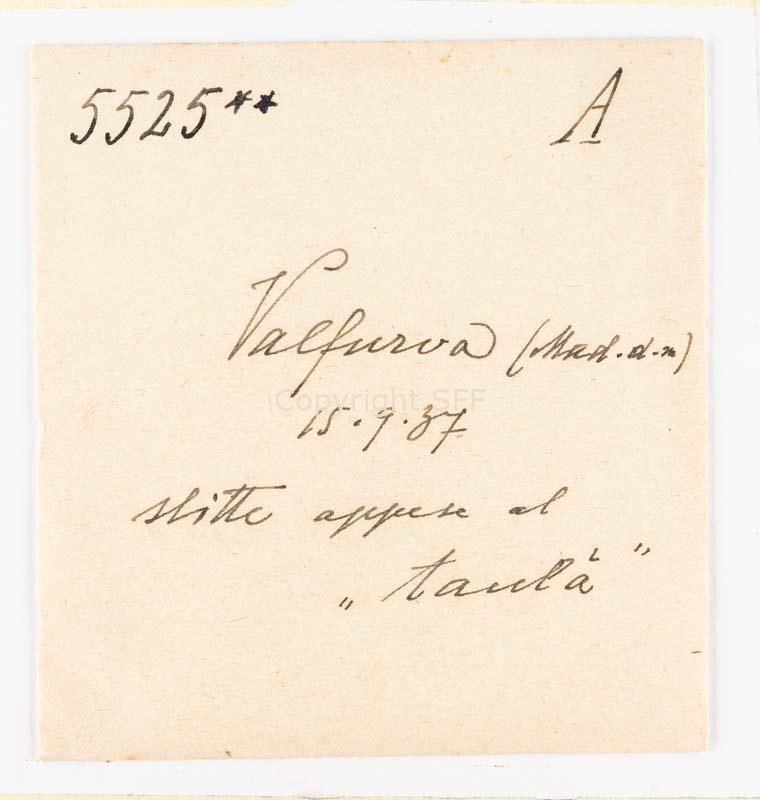 5525** A
Valfurva (Mad.d.m)
Copyright SFF
15.9.37
slitte appese al
„taulà"